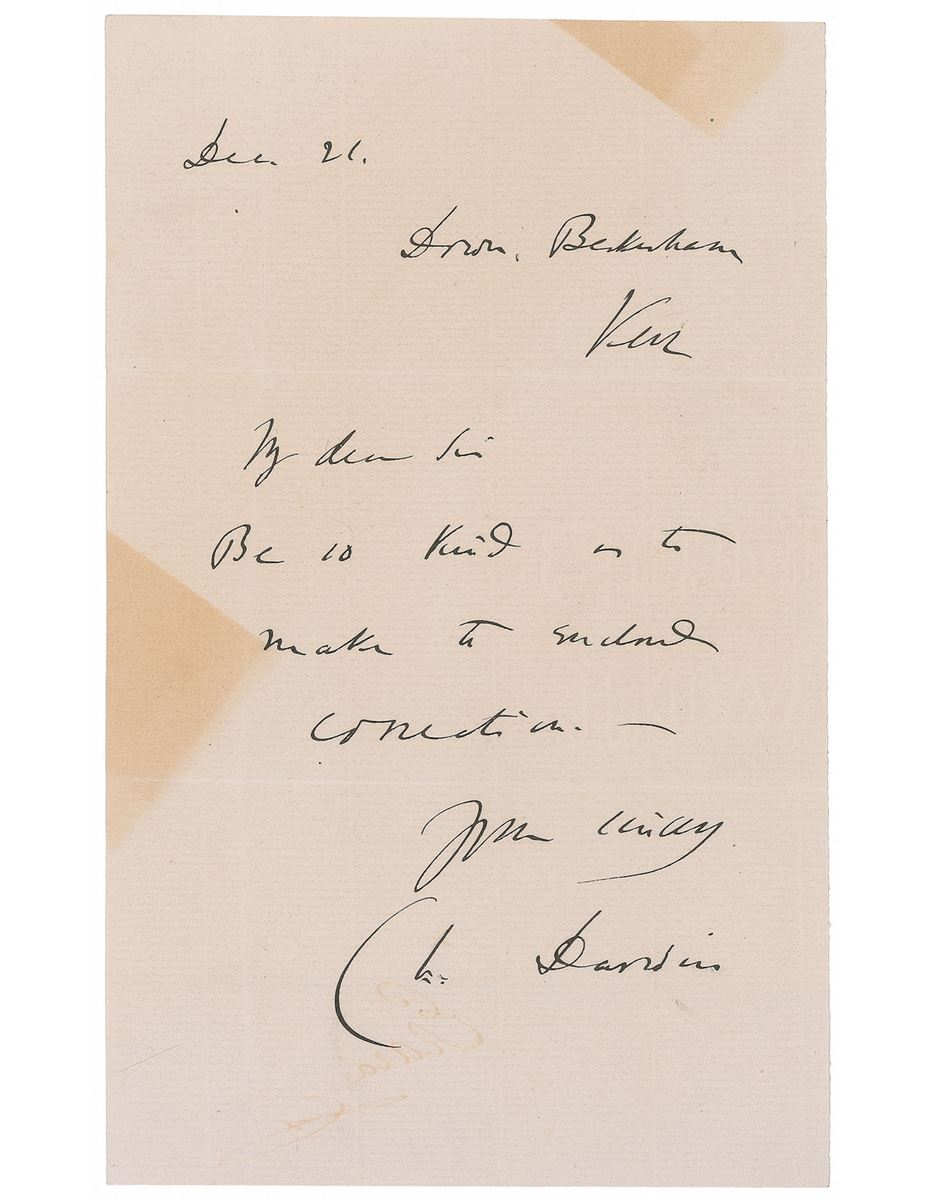 Dec. 21.
Down, Beckenham
Kent
My dear Sir
Be so kind as to
make the enclosed
correction. —
Yours
Ch. Darwin